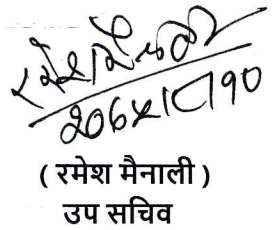 रमेश मैनाली
२०६५।८।१०
( रमेश मैनाली )
उप सचिव